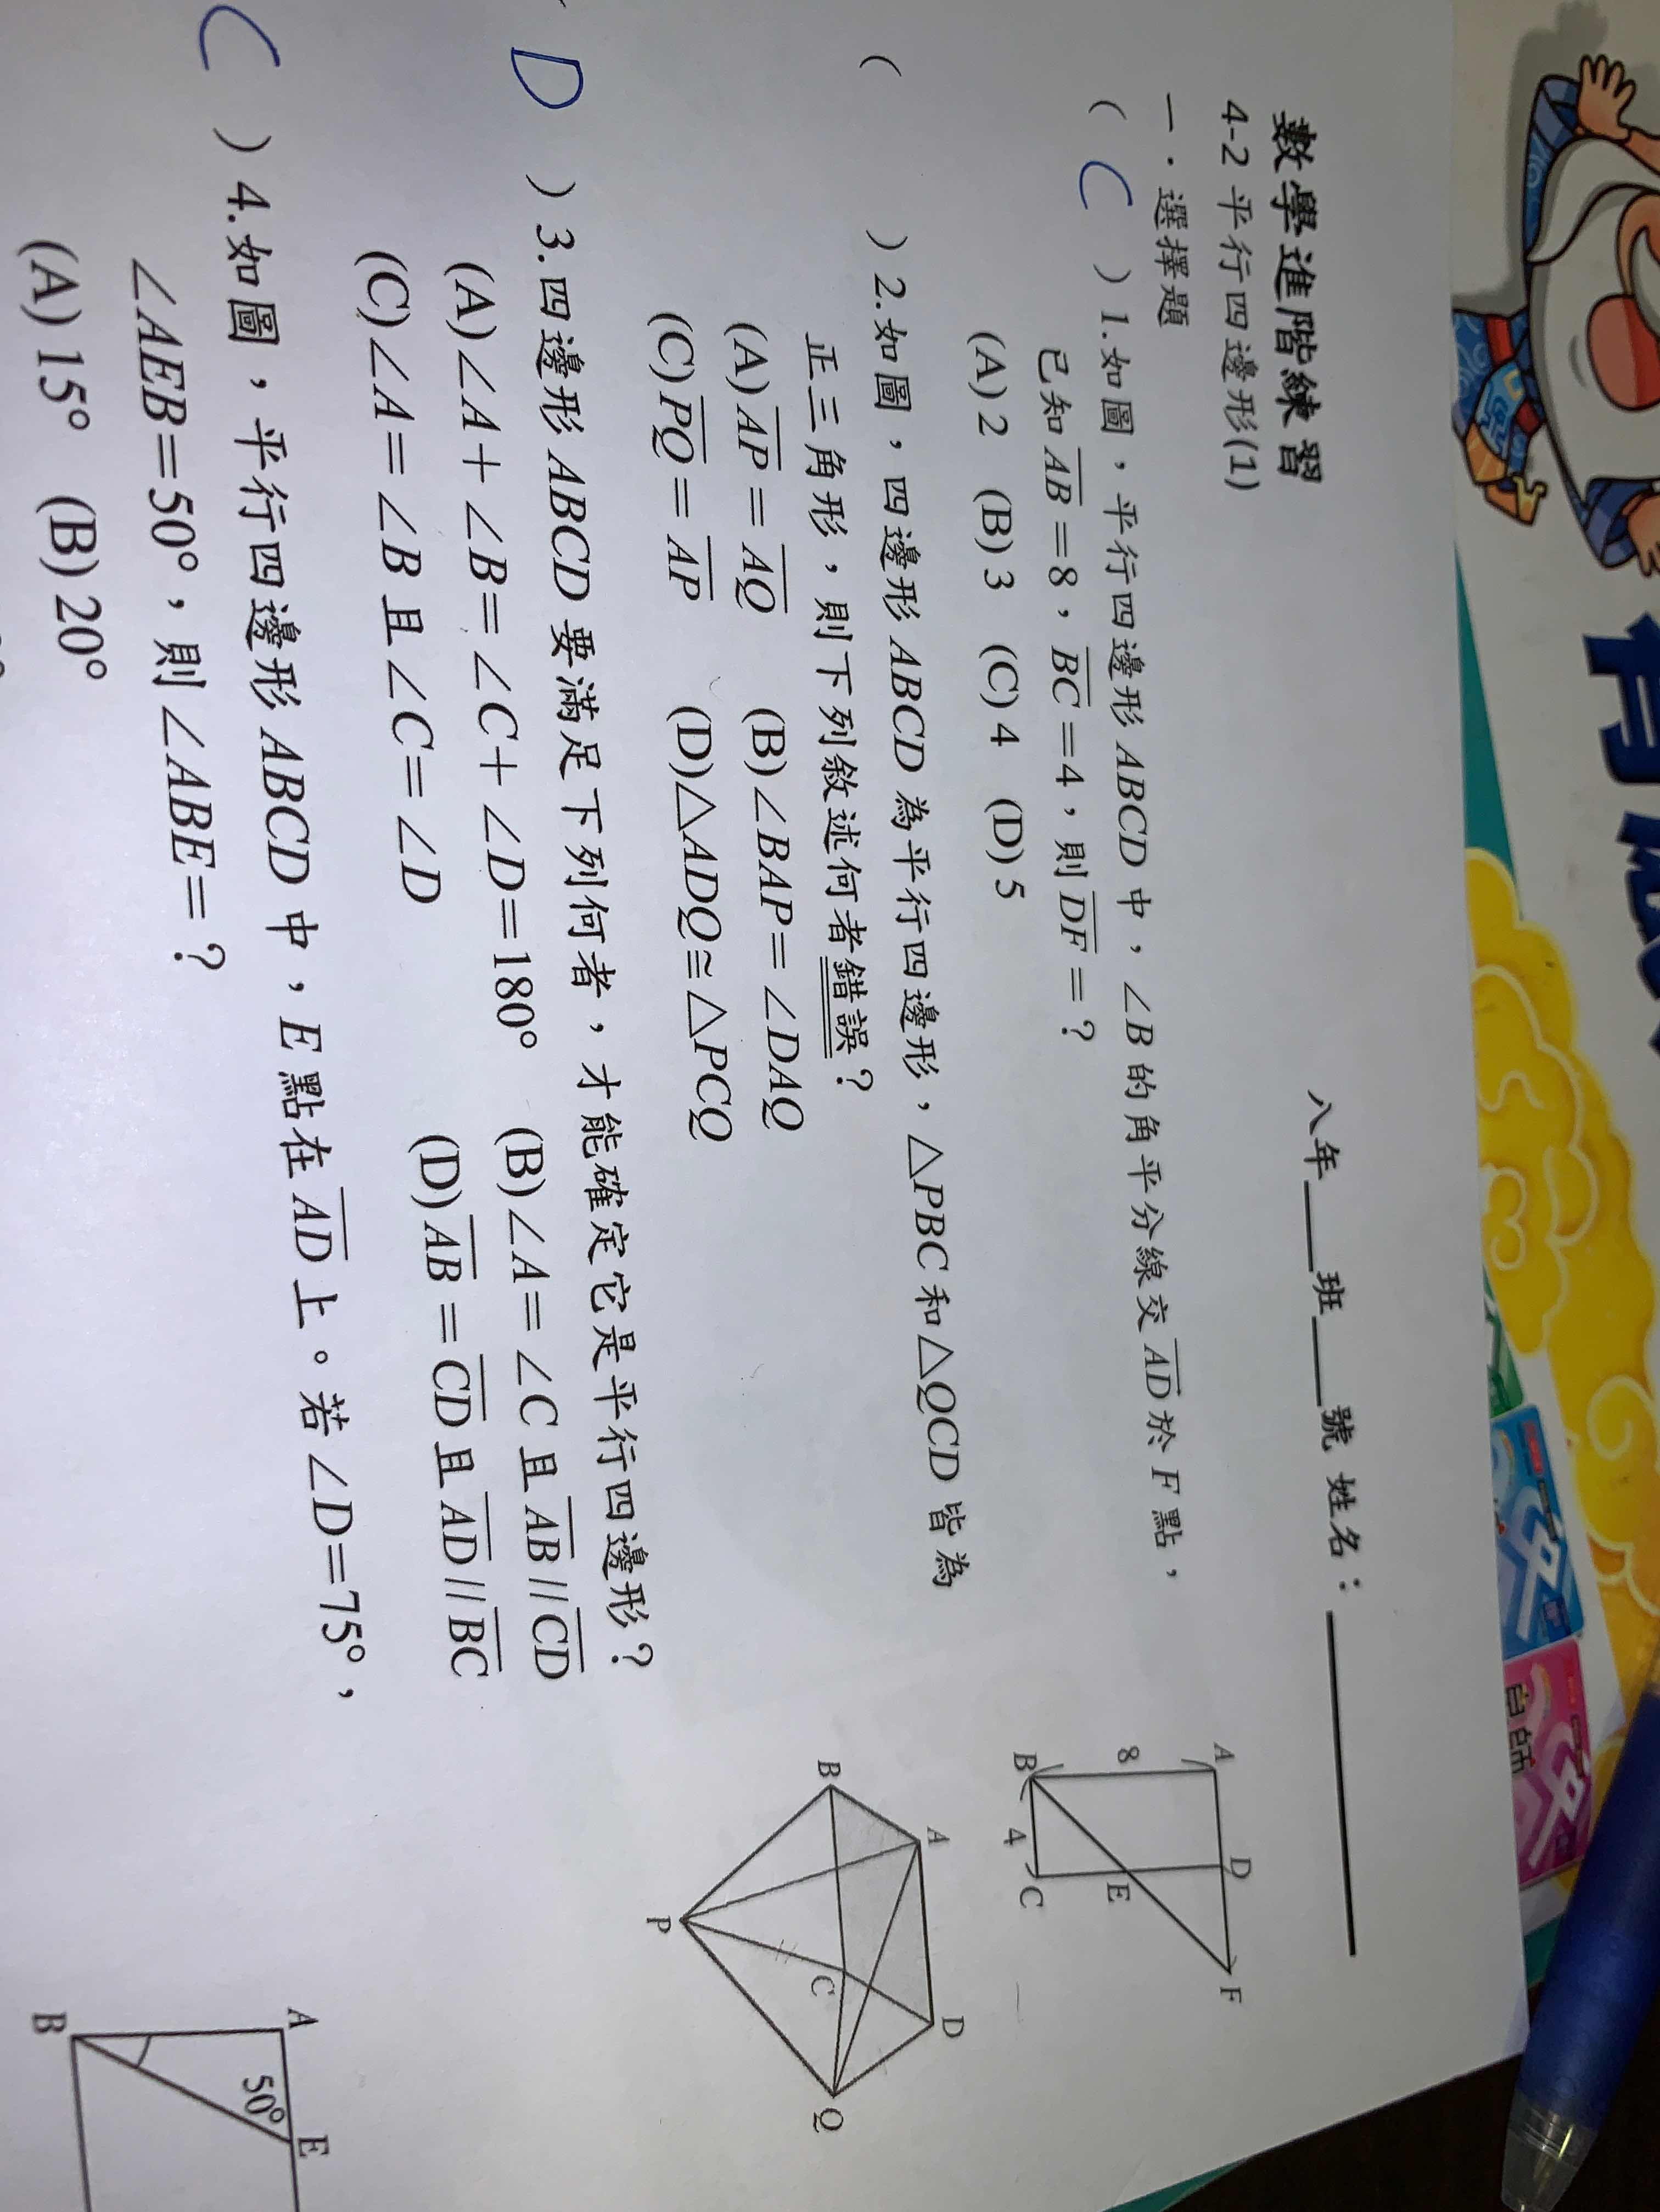 數學進階練習
八年___班___號 姓名：________
4-2 平行四邊形(1)
一．選擇題
( C )1.如圖，平行四邊形 ABCD 中，∠B 的角平分線交 AD 於 F 點，
已知 AB＝8，BC＝4，則 DF＝？
(A) 2 (B) 3 (C) 4 (D) 5
A
D
F
8
E
B
4
C
( )2.如圖，四邊形 ABCD 為平行四邊形，△PBC 和△QCD 皆為
正三角形，則下列敘述何者錯誤？
(A) AP＝AQ (B)∠BAP＝∠DAQ
(C) PQ＝AP (D)△ADQ≅△PCQ
A
D
B
C
Q
P
D )3.四邊形 ABCD 要滿足下列何者，才能確定它是平行四邊形？
(A)∠A＋∠B＝∠C＋∠D＝180° (B)∠A＝∠C 且 AB//CD
(C)∠A＝∠B 且∠C＝∠D (D) AB＝CD 且 AD//BC
C )4.如圖，平行四邊形 ABCD 中，E 點在 AD 上。若∠D＝75°，
∠AEB＝50°，則∠ABE＝？
(A) 15° (B) 20°
A
E
50°
B